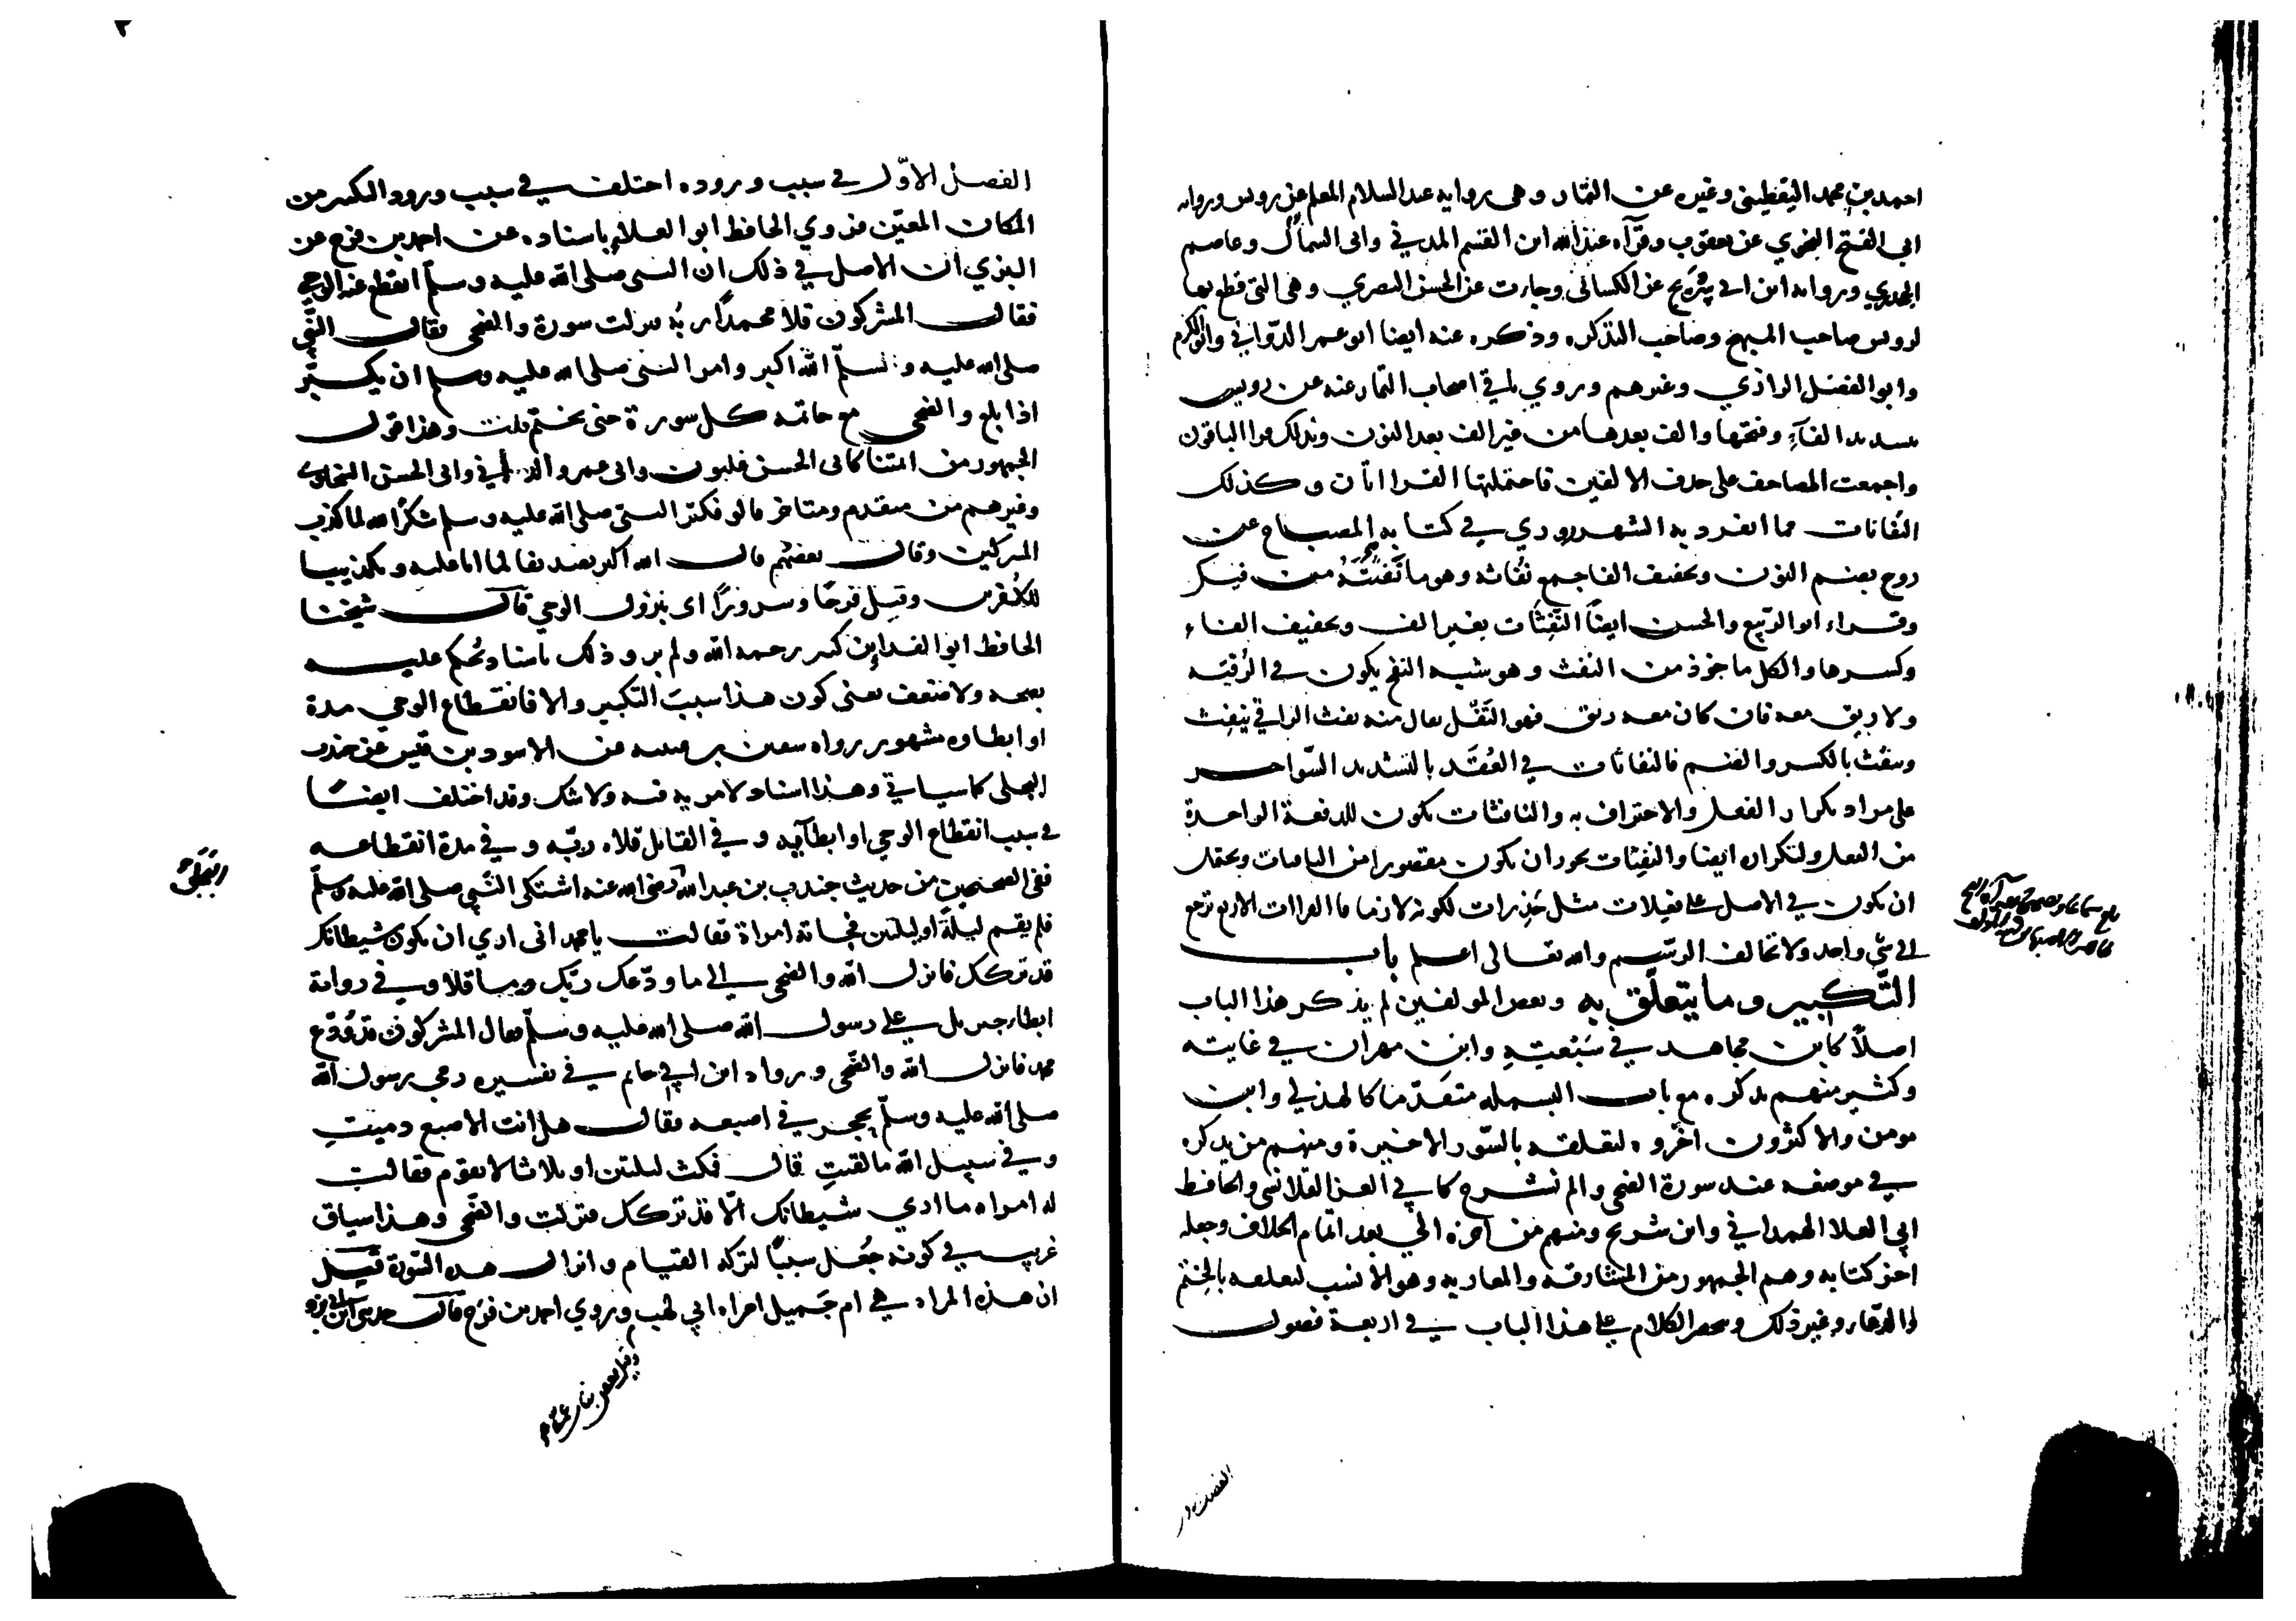 احمد بن محمد اليقطيني وغيره عن التمار وهي رواية عبد السلام المعلم عن رويس ورواية
ابي الفتح النحوي عن يعقوب وقرآءة عبد الله ابن القسم المدني وابي السمأل وعاصم
الجحدري ورواية ابن ابي شريح عن الكسائي وجاءت عن الحسن البصري وهي التي قطع بها
لرويس صاحب المبهج وصاحب التذكرة وذكره عنه ايضا ابو عمر الدواني وابو الكرم
وابو الفضل الرازي وغيرهم وروي باقي اصحاب التمار عنه عن رويس
بتشديد الفآء وفتحها والف بعدها من غير الف بعد النون وبذلك قرا الباقون
واجمعت المصاحف على حذف الالفين فاحتملتها القراءات وكذلك
النفاثات مما انفرد به الشهرزوري في كتابه المصباح عن
روح بضم النون وتخفيف الفا جمع نفاثة وهو ما نفثته من فيك
وقراء ابو الربيع والحسن ايضا النفثات بغير الف وتخفيف الفاء
وكسرها والكل ماخوذ من النفث وهو شبه النفخ يكون في الرقية
ولا ريق معه فان كان معه ريق فهو التفل يقال منه نفث الراقي ينفث
وينفث بالكسر والضم فالنفاثات في العقد بالتشديد السواحر
على مراد تكرار الفعل والاحتراف به والنافثات تكون للدفعة الواحدة
من الفعل ولتكراره ايضا والنفثات يجوز ان يكون مقصورا من النافثات ويحتمل
ان يكون في الاصل على فعلات مثل حذرات لكونه لازما فالقراات الاربع ترجع
الى شي واحد ولا تخالف الرسم والله تعالى اعلم باب
التكبير وما يتعلق به وبعض المولفين لم يذكر هذا الباب
اصلا كابن مجاهد في سبعته وابن مهران في غايته
وكثير منهم يذكره مع باب البسملة متقدما كالهذلي وابن
مومن والاكثرون اخروه لتعلقه بالسور الاخيرة ومنهم من يذكره
في موضعه عند سورة الضحى والم نشرح كابي العز القلانسي والحافظ
ابي العلا الهمداني وابن شريح ومنهم من اخره الى بعد اتمام الخلاف وجعله
اخر كتابه وهم الجمهور من المشارقة والمغاربة وهو الانسب لتعلقه بالختم
والدعاء وغير ذلك وينحصر الكلام على هذا الباب في اربعة فصول
الفصل الاول في
٢
الفصل الاول في سبب وروده اختلف في سبب ورود التكبير من
المكان المعين فروي الحافظ ابو العلاء باسناده عن احمد بن فرح عن
البزي ان الاصل في ذلك ان النبي صلى الله عليه وسلم انقطع عنه الوحي
فقال المشركون قلا محمدا ربه فنزلت سورة والضحى فقال النبي
صلى الله عليه وسلم الله اكبر وامر النبي صلى الله عليه وسلم ان يكبر
اذا بلغ والضحى مع خاتمة كل سورة حتى يختم قلت وهذا قول
الجمهور من ائمتنا كابي الحسن غلبون وابي عمرو الداني وابي الحسن السخاوي
وغيرهم من متقدم ومتاخر قالوا فكبر النبي صلى الله عليه وسلم شكرا لله لما كذب
المشركين وقال بعضهم قال الله اكبر تصديقا لما انا عليه وتكذيبا
للكافرين وقيل فرحا وسرورا اي بنزول الوحي قال شيخنا
الحافظ ابو الفدا بن كثير رحمه الله ولم يرو ذلك باسناد يحكم عليه
بصحة ولا ضعف يعني كون هذا سبب التكبير والا فانقطاع الوحي مدة
او ابطاوه مشهور رواه سفين بن عيينه عن الاسود بن قيس عن جندب
البجلي كما سياتي وهذا اسناد لا مرية فيه ولا شك وقد اختلف ايضا
في سبب انقطاع الوحي او ابطآئه وفي القايل قلاه ربه وفي مدة انقطاعه
ففي الصحيحين من حديث جندب بن عبد الله رضي الله عنه اشتكى النبي صلى الله عليه وسلم
البجلي
فلم يقم ليلة او ليلتين فجاته امراة فقالت يا محمد اني اري ان يكون شيطانك
قد تركك فانزل الله والضحى الى ما ودعك ربك وما قلا وفي رواية
ابطاء جبريل على رسول الله صلى الله عليه وسلم فقال المشركون قد ودع
محمد فانزل الله والضحى ورواه ابن ابي حاتم في تفسيره رمي رسول الله
صلى الله عليه وسلم بحجر في اصبعه فقال هل انت الا اصبع دميت
وفي سبيل الله ما لقيت قال فمكث ليلتين او ثلاثا لا يقوم فقالت
له امراه ما اري شيطانك الا قد تركك فنزلت والضحى وهذا سياق
غريب في كونه جعل سببا لتركه القيام وانزال هذه السورة قيل
ان هذه المراه هي ام جميل امراه ابي لهب وروي احمد بن فرح قال حدثني ابن ابي بزه